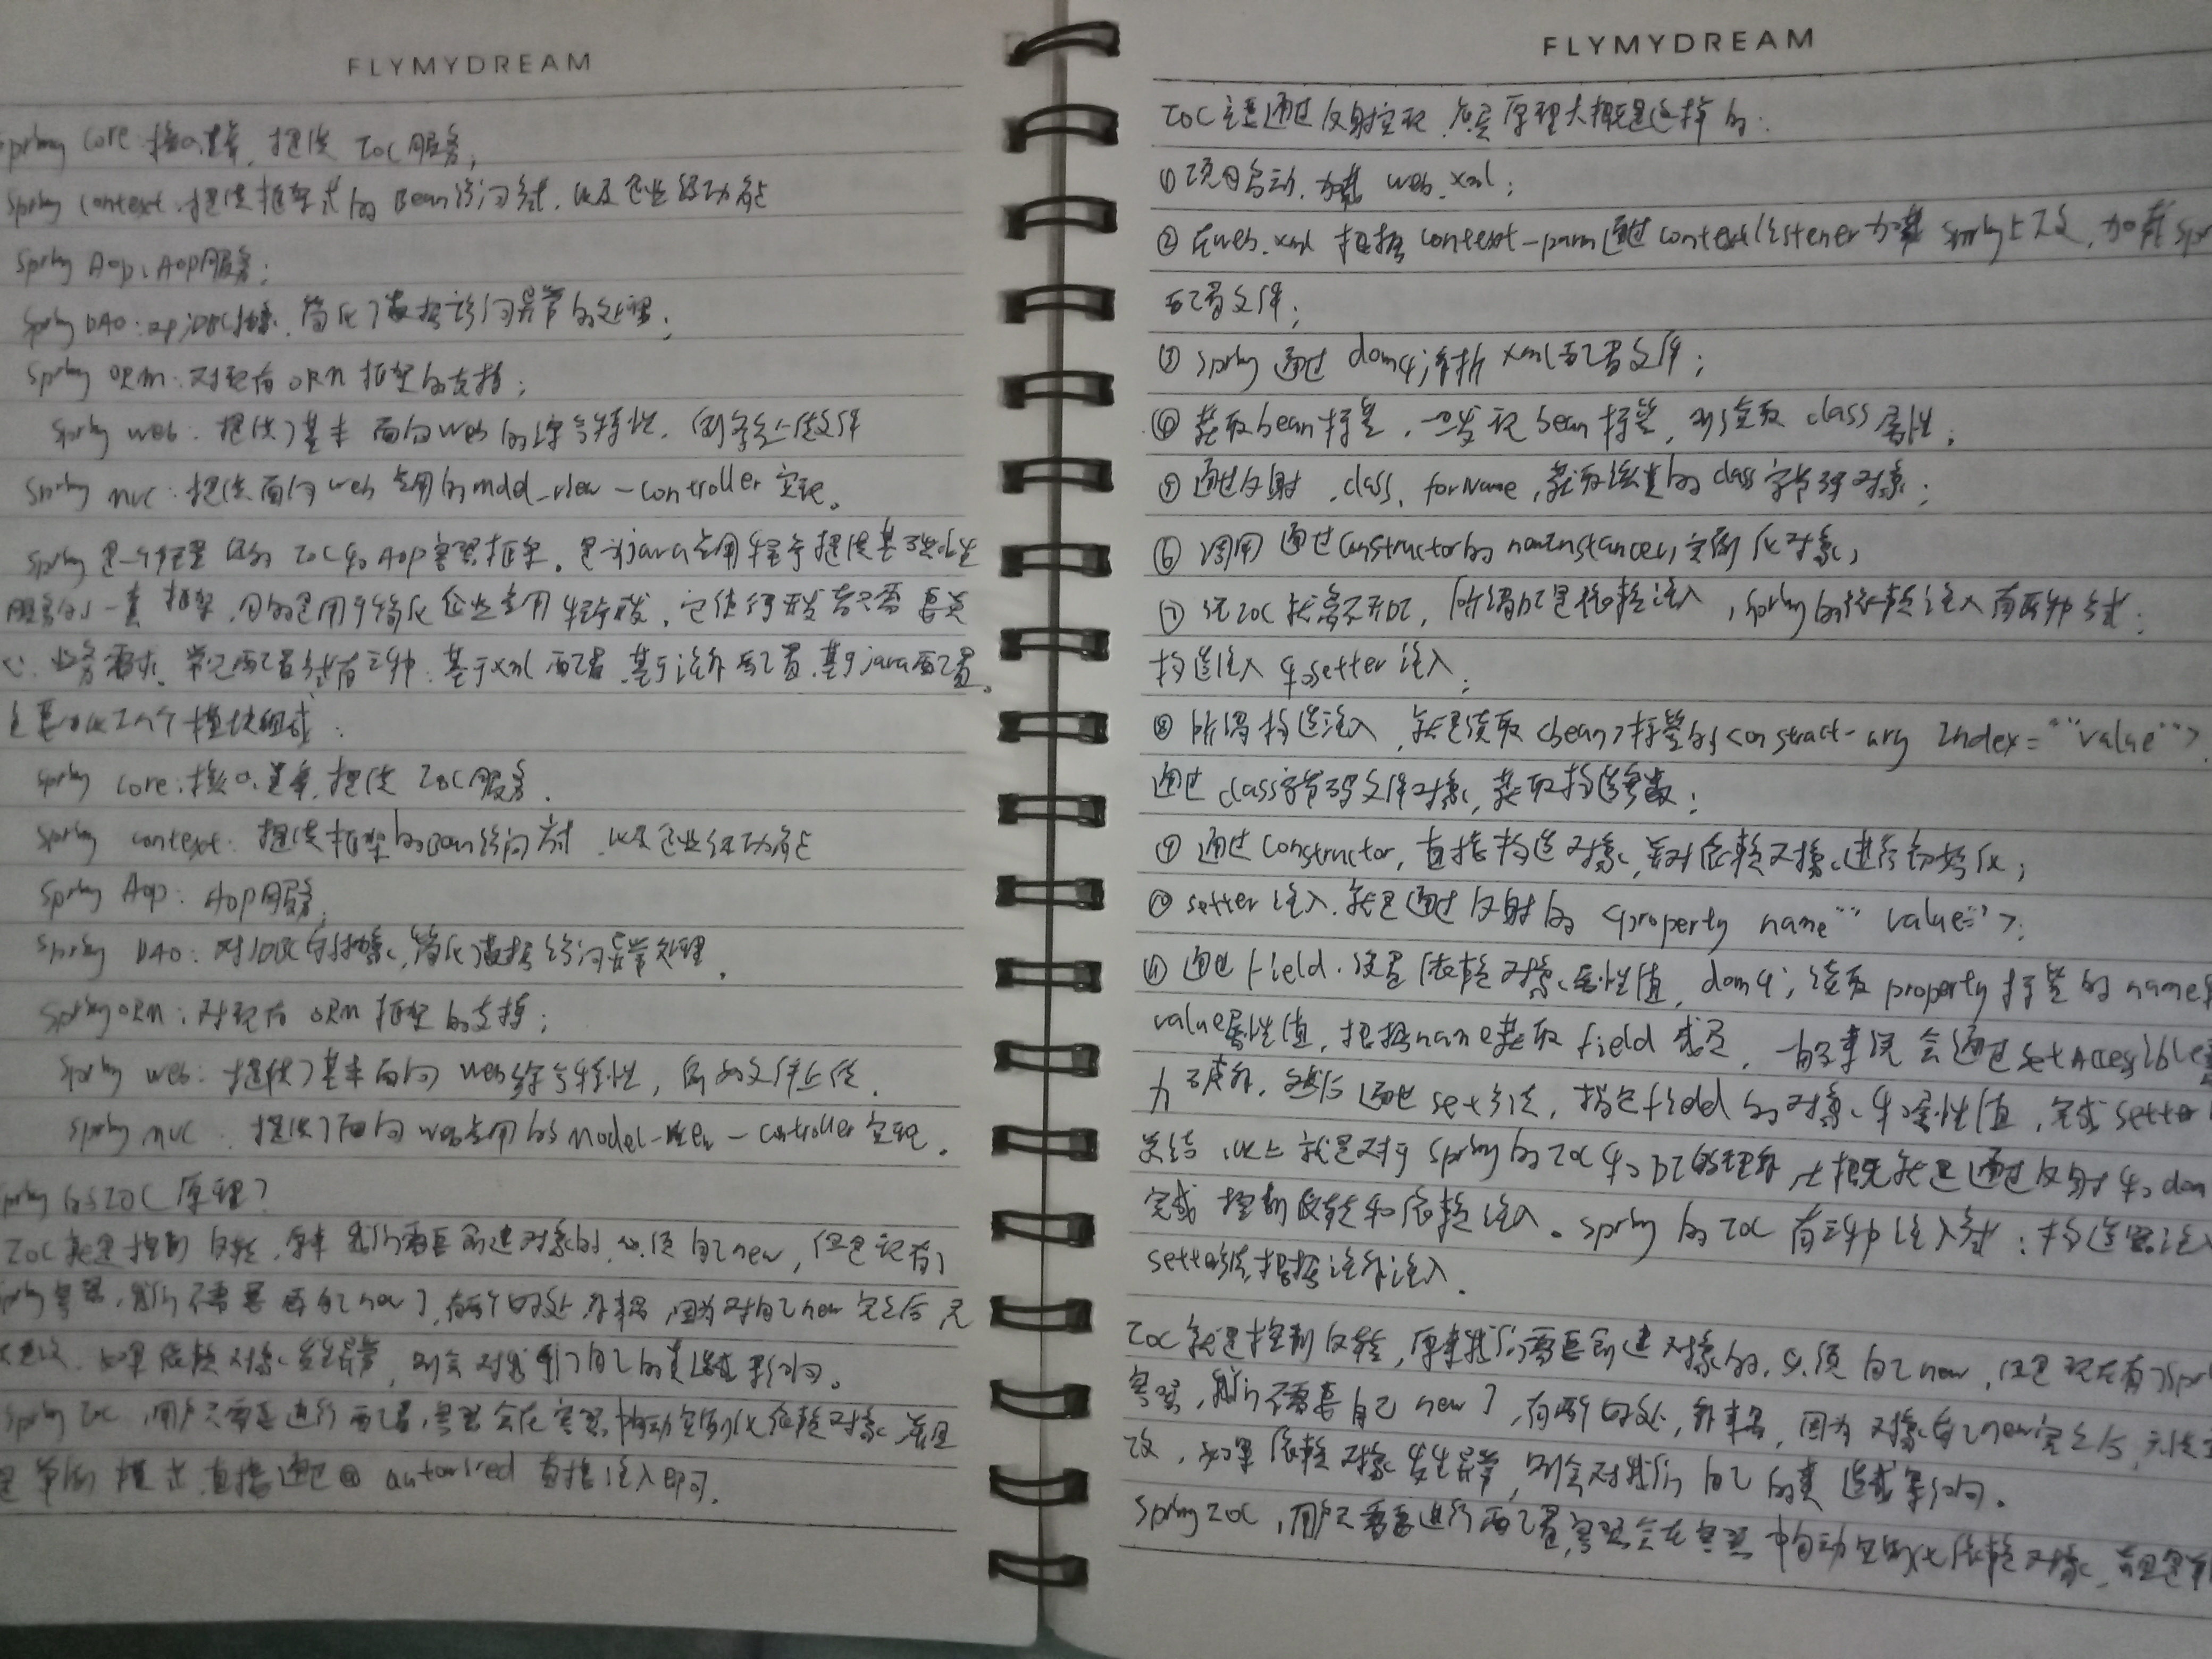 FLYMYDREAM
Spring Core:核心容器,提供IOC服务;
Spring Context:提供框架式的Bean访问方式,以及企业级功能
Spring Aop:Aop服务;
Spring DAO:对JDBC抽象,简化了数据访问异常的处理;
Spring ORM:对现有ORM框架的支持;
Spring web:提供了基本面向web的综合特性,例如多文件上传
Spring mvc:提供面向web应用的model-view-controller实现。
Spring是一个轻量级的IOC和AOP容器框架。是为java应用程序提供基础性
服务的一套框架,目的是用于简化企业应用程序开发,它使得开发者只需要关
心业务需求。常见配置方式有三种:基于xml配置、基于注解配置、基于java配置。
主要由以下几个模块组成:
Spring Core:核心容器,提供IOC服务.
Spring context:提供框架的Bean访问方式,以及企业级功能
Spring Aop:Aop服务;
Spring DAO:对JDBC的抽象,简化了数据访问异常处理.
Spring ORM:对现有ORM框架的支持;
Spring web:提供了基本面向web综合特性,例如文件上传.
Spring mvc:提供了面向web应用的Model-View-Controller实现.
Spring的IOC原理?
IOC就是控制反转,原来我们需要创建对象的,必须自己new,但是现有了
Spring容器,我们不需要再自己new了,有两个好处,解耦,因为对自己new完之后,无
法更改,如果依赖对象发生异常,则会对我们自己的类造成影响。
Spring IOC,用户只需要进行配置,容器会在容器中自动实例化依赖对象,并且
是单例模式,直接通过@autowired直接注入即可.
FLYMYDREAM
IOC主要通过反射实现,底层原理大概是这样的:
①项目启动,加载web.xml;
②在web.xml根据context-param通过contextlistener加载Spring上下文,加载Spr
配置文件;
③Spring通过dom4j解析xml配置文件;
④获取bean标签,一发现bean标签,则读取class属性;
⑤通过反射,class.forName,获取该类的class字节码对象;
⑥调用通过constructor的newInstance()实例化对象;
⑦说IOC就离不开DI,所谓DI是依赖注入,Spring的依赖注入有两种方式:
构造注入和setter注入;
⑧所谓构造注入,就是读取<bean>标签的<constract-arg Index="" value="">
通过class字节码文件对象,获取构造参数;
⑨通过Constructor,直接构造对象,并对依赖对象进行初始化;
⑩setter注入,就是通过反射的<property name="" value="">;
⑪通过Field,设置依赖对象属性值,dom4j读取property标签的name
value属性值,根据name获取field成员,一般来说会通过setAccessible
力破解,然后通过set方法,指定field的对象和属性值,完成setter
总结,以上就是对于Spring的IOC和DI的理解,大概就是通过反射和dom
完成控制反转和依赖注入。Spring的IOC有三种注入方式:构造器注入
setter注入,根据注解注入.
IOC就是控制反转,原来我们需要创建对象的,必须自己new,但是现在有了Spr
容器,我们不需要自己new了,有两个好处,解耦,因为对象自己new完之后,无法
改,如果依赖对象发生异常,则会对我们自己的类造成影响.
Spring IOC,用户只需要进行配置,容器会在容器中自动实例化依赖对象,并且是单